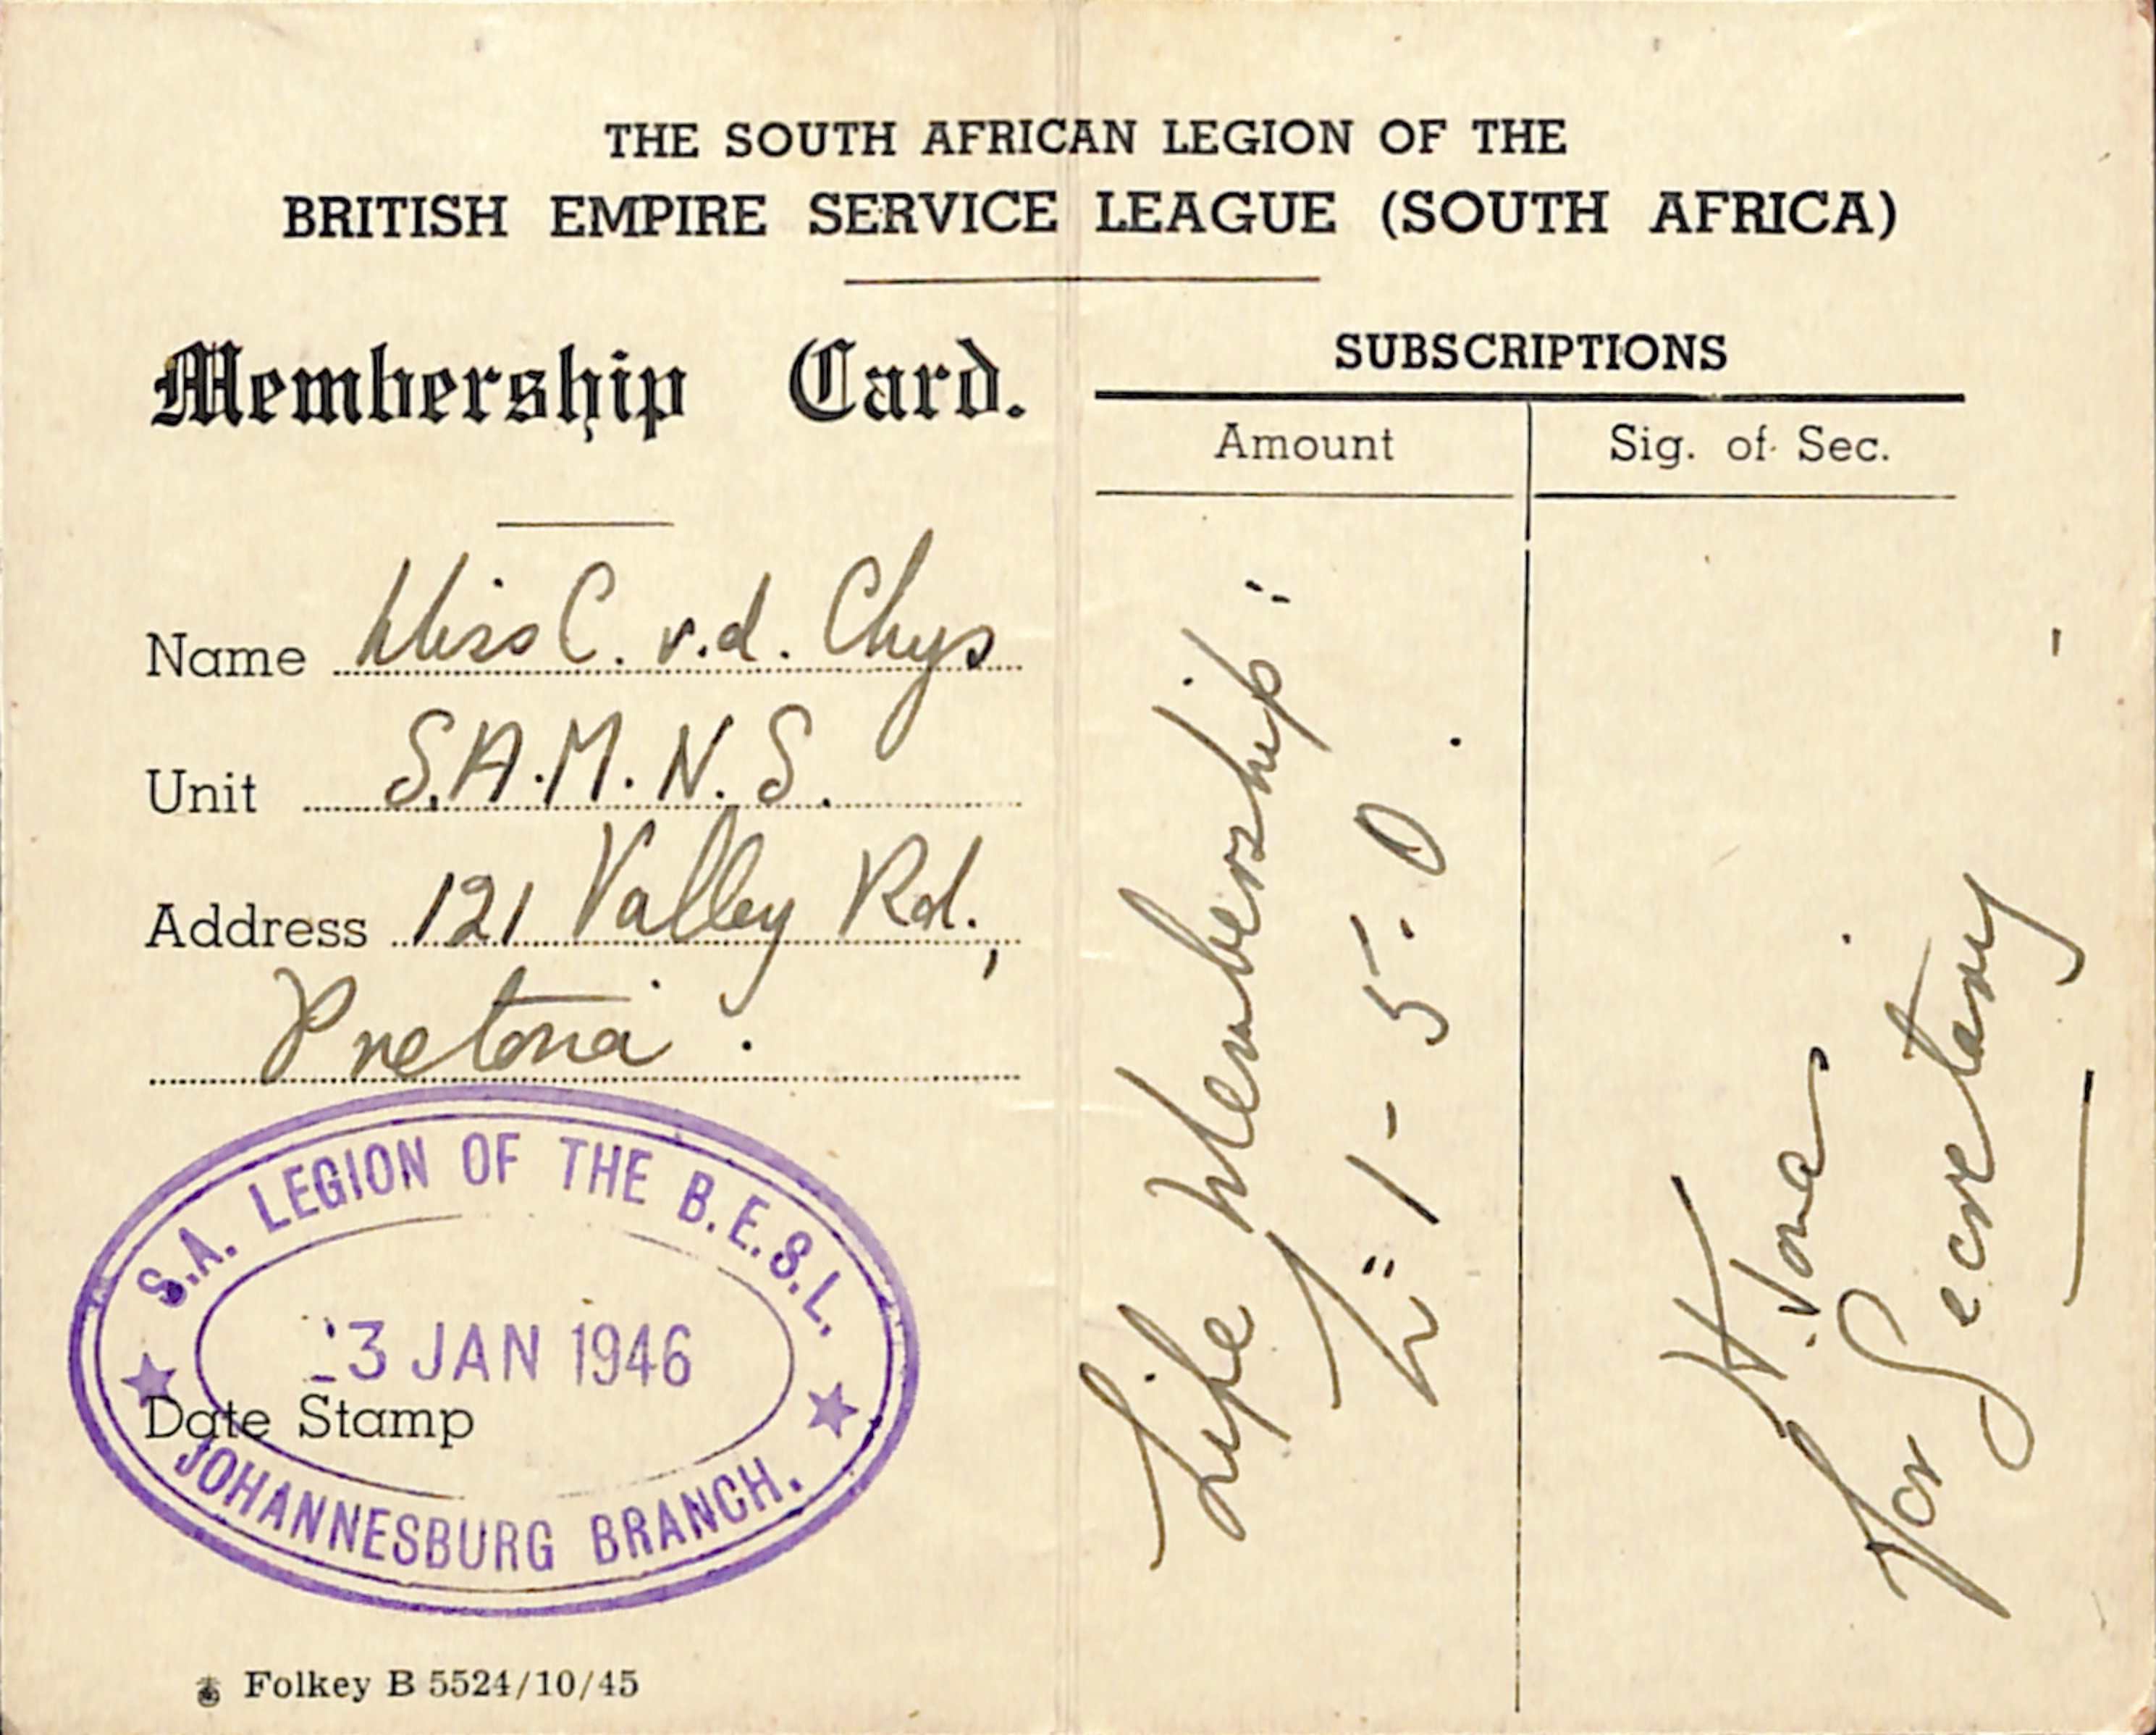 THE SOUTH AFRICAN LEGION OF THE
BRITISH EMPIRE SERVICE LEAGUE (SOUTH AFRICA)
Membership Card.
Name Miss C. v.d. Chys
Unit S.A.M.N.S.
Address 121 Valley Rd.,
Pretoria.
S.A. LEGION OF THE B.E.S.L.
3 JAN 1946
Date Stamp
JOHANNESBURG BRANCH.
Folkey B 5524/10/45
SUBSCRIPTIONS
Amount Sig. of Sec.
Life Membership:
1 - 5 - 0.
for Secretary